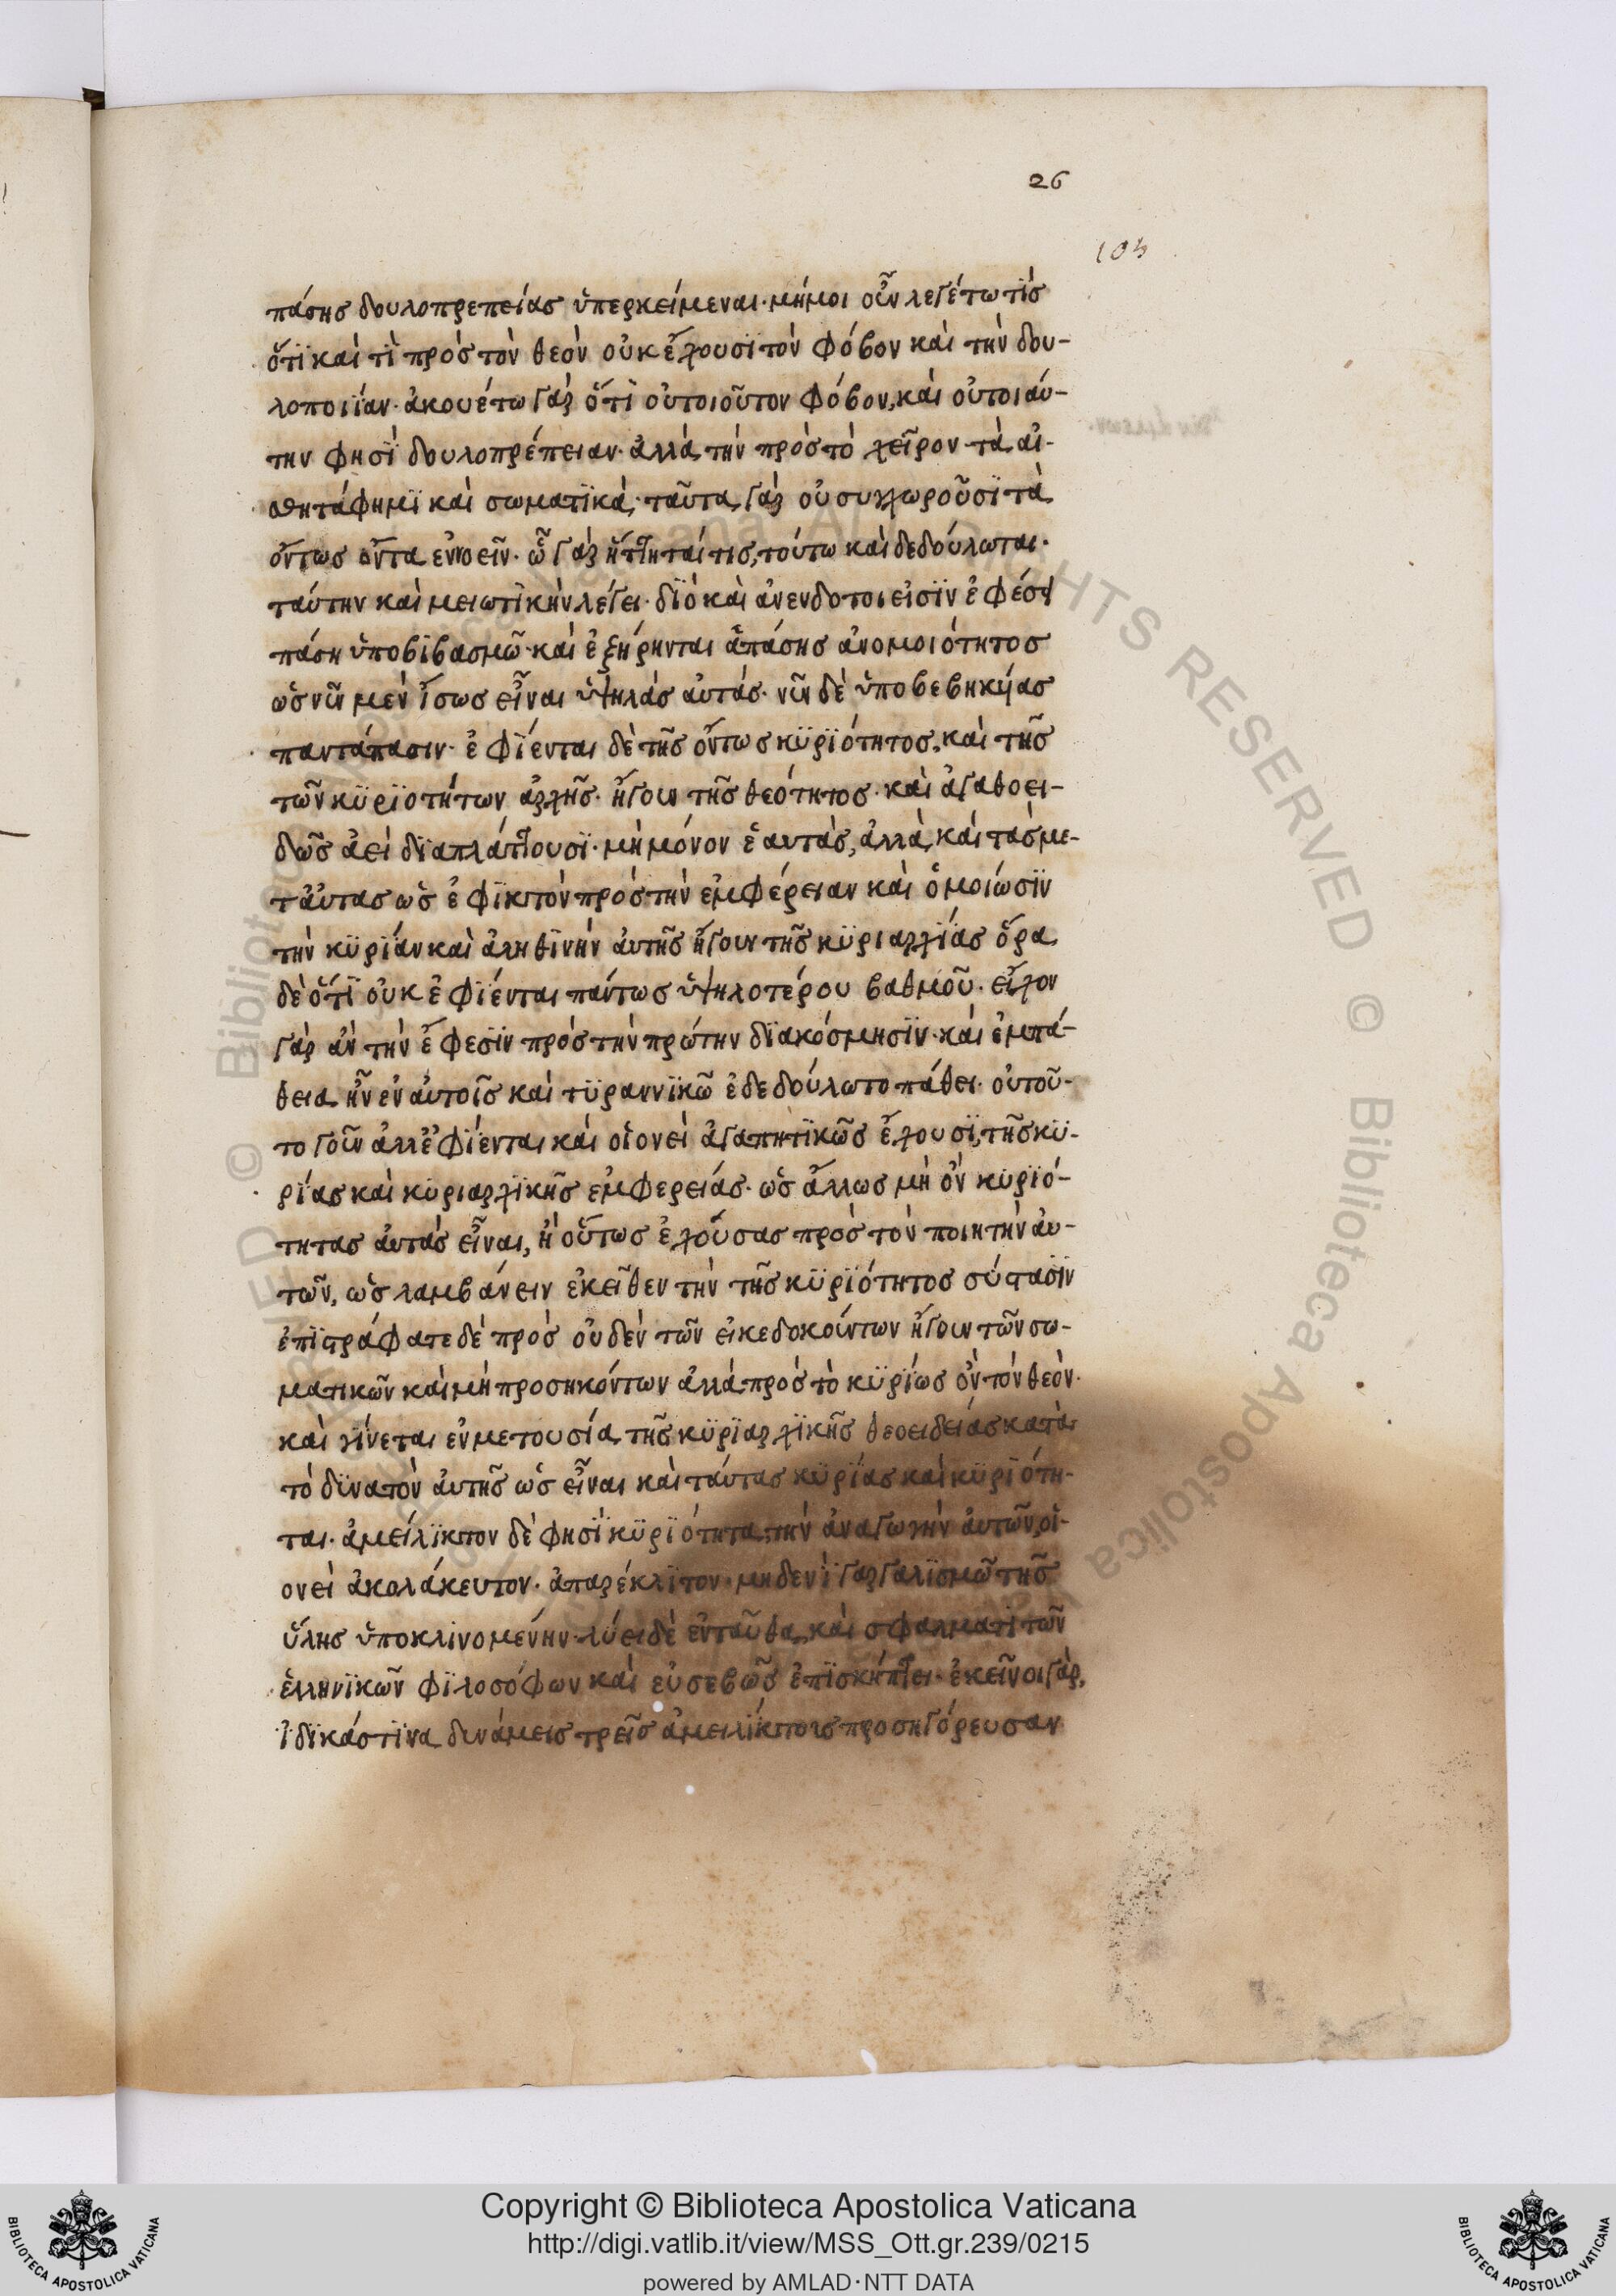 26
103
πάσης δουλοπρεπείας ὑπερκείμεναι· μήμοι οὖν λεγέτω τίς
ὅτϊ καὶ τὶ πρὸς τὸν θεὸν οὐκ ἔχουσϊ τὸν φόβον καὶ τὴν δου-
λοποιϊαν· ἀκουέτω γὰρ ὅτὶ οὐτοιοῦτον φόβον, καὶ οὐτοιαύ-
την φησὶ δουλοπρέπειαν· ἀλλὰ τὴν πρὸς τὸ χεῖρον τὰ αἰ-
σθητά φημϊ καὶ σωματϊκά· ταῦτα γὰρ οὐ συγχωροῦσϊ τὰ
ὄντως ὄντα ἐννοεῖν· ᾧ γὰρ ἥττηταί τις, τούτω καὶ δεδούλωται·
ταύτην καὶ μειωτϊκὴν λέγει· δϊὸ καὶ ἀνενδοτοι εἰσϊν ἐφέσει
πάση ὑποβϊβασμῶ· καὶ ἐξήρηνται ἁπάσης ἀνομοιότητος
ὡς νῦν μὲν ἴσως εἶναι ὑψηλὰς αὐτάς· νῦν δὲ ὑποβεβηκύας
παντάπασιν· ἐφϊενται δὲ τῆς ὄντως κϋρϊότητος, καὶ τῆς
τῶν κϋρϊοτήτων ἀρχῆς· ἤγουν τῆς θεότητος· καὶ ἀγαθοει-
δῶς ἀεὶ δϊαπλάττουσϊ· μὴ μόνον ἑαυτάς, ἀλλὰ καὶ τὰς με-
τ' αὐτας ὡς ἐφϊκτὸν πρὸς τὴν ἐμφέρειαν καὶ ὁμοιώσϊν
τὴν κϋρϊαν καὶ ἀληθϊνὴν ἀυτῆς ἤγουν τῆς κϋριαρχϊας ὅρα
δὲ ὅτϊ οὐκ ἐφϊενται πάντως ὑψηλοτέρου βαθμοῦ· εἶχον
γὰρ ἂν τὴν ἔφεσϊν πρὸς τὴν πρώτην δϊακόσμησϊν· καὶ ἐμπά-
θεια ἦν ἐν αὐτοῖς καὶ τϋραννϊκῶ ἐδεδούλωτο πάθει· οὐτοῦ-
το γοῦν ἀλλ' ἐφϊενται καὶ οἱονεὶ ἀγαπητϊκῶς ἔχουσϊ, τῆς κϋ-
ρϊας καὶ κϋριαρχϊκῆς ἐμφερείας· ὡς ἄλλως μὴ ὂν κϋρϊό-
τητας ἀυτὰς εἶναι, ἢ οὕτως ἐχούσας πρὸς τὸν ποιητὴν ἀυ-
τῶν, ὡς λαμβάνειν ἐκεῖθεν τὴν τῆς κϋρϊότητος σύστασϊν
ἐπϊστράφατε δὲ πρὸς οὐδὲν τῶν εἰκεδοκούντων ἤγουν τῶν σω-
ματικῶν καὶ μὴ προσηκόντων ἀλλὰ πρὸς τὸ κϋρίως ὂν τὸν θεὸν·
καὶ γίνεται ἐν μετουσία τῆς κϋρϊαρχϊκῆς θεοειδείας κατὰ
τὸ δϋνατὸν ἀυτῆς ὡς εἶναι καὶ ταύτας κϋρϊας καὶ κϋρϊότη-
ται· ἀμείλϊκτον δὲ φησὶ κϋρϊότητα, τὴν ἀναγωγὴν ἀυτῶν, οἱ-
ονεὶ ἀκολάκευτον· ἀπαρέκλϊτον· μηδενὶ γαργαλϊσμῶ τῆς
ὕλης ὑποκλϊνομένην· λύει δὲ ἐνταῦθα καὶ σφαλματὶ τῶν
ἑλληνϊκῶν φϊλοσόφων καὶ εὐσεβῶς ἐπϊσκήπτει· ἐκεῖνοι γὰρ,
ἰδϊκάς τϊνα δυνάμεις τρεῖς ἀμειλίκτους προσηγόρευσαν
Copyright © Biblioteca Apostolica Vaticana
http://digi.vatlib.it/view/MSS_Ott.gr.239/0215
powered by AMLAD·NTT DATA